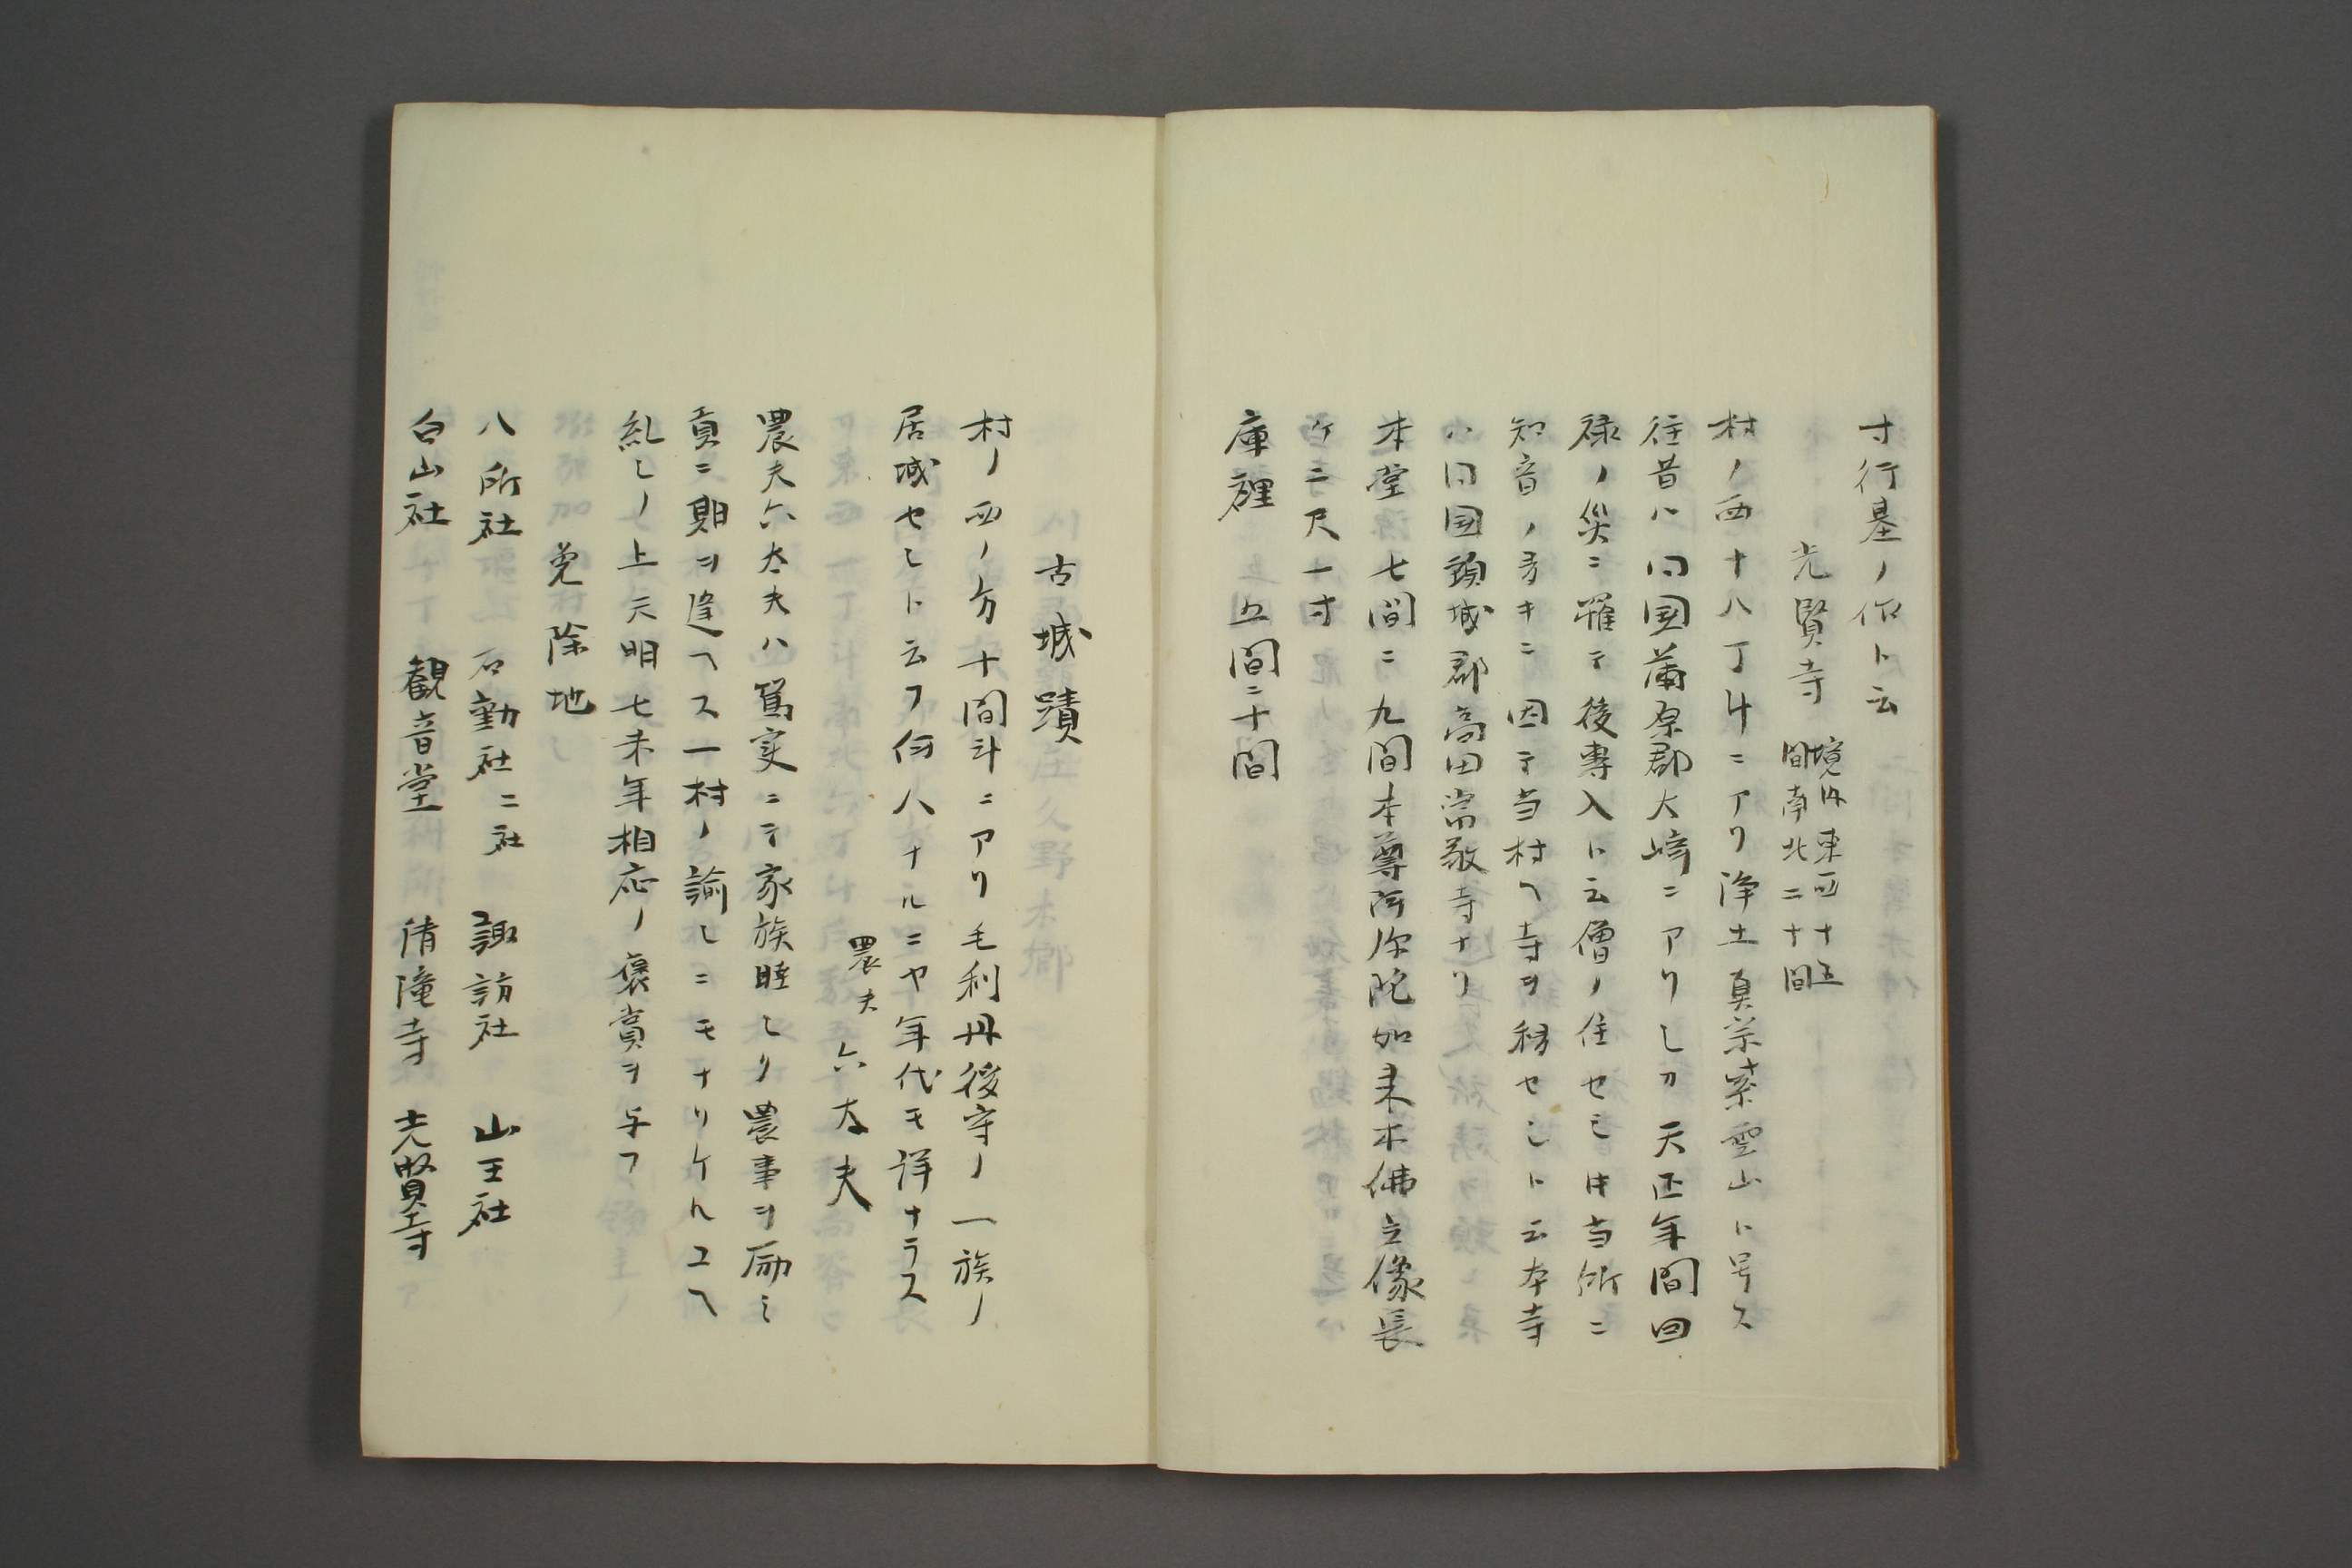 寸行基ノ作ト云
光賢寺 境内東西十五間南北二十間
村ノ西十八丁斗ニアリ浄土真宗紫雲山ト号ス
往昔ハ同国蒲原郡大崎ニアリシカ天正年間回
禄ノ災ニ罹テ後専入ト云僧ノ住セシ時当所ニ
知音ノ多キニ因テ当村ヘ寺ヲ移セシト云本寺
ハ同国頸城郡高田常敬寺ナリ
本堂 七間ニ九間本尊阿弥陀如来木佛立像長
ケ二尺一寸
庫裡 五間ニ十間
古城蹟
村ノ西ノ方十間斗ニアリ毛利丹後守ノ一族ノ
居城セシト云フ何人ナルニヤ年代モ詳ナラス
農夫 六太夫
農夫六太夫ハ篤実ニテ家族睦シク農事ヲ励ミ
貢ニ期ヲ違ヘス一村ノ諭シニモナリケルユヘ
糺シノ上天明七未年相応ノ褒賞ヲ与フ
免除地
八所社 石動社二社 諏訪社 山王社
白山社 観音堂 清滝寺 光賢寺